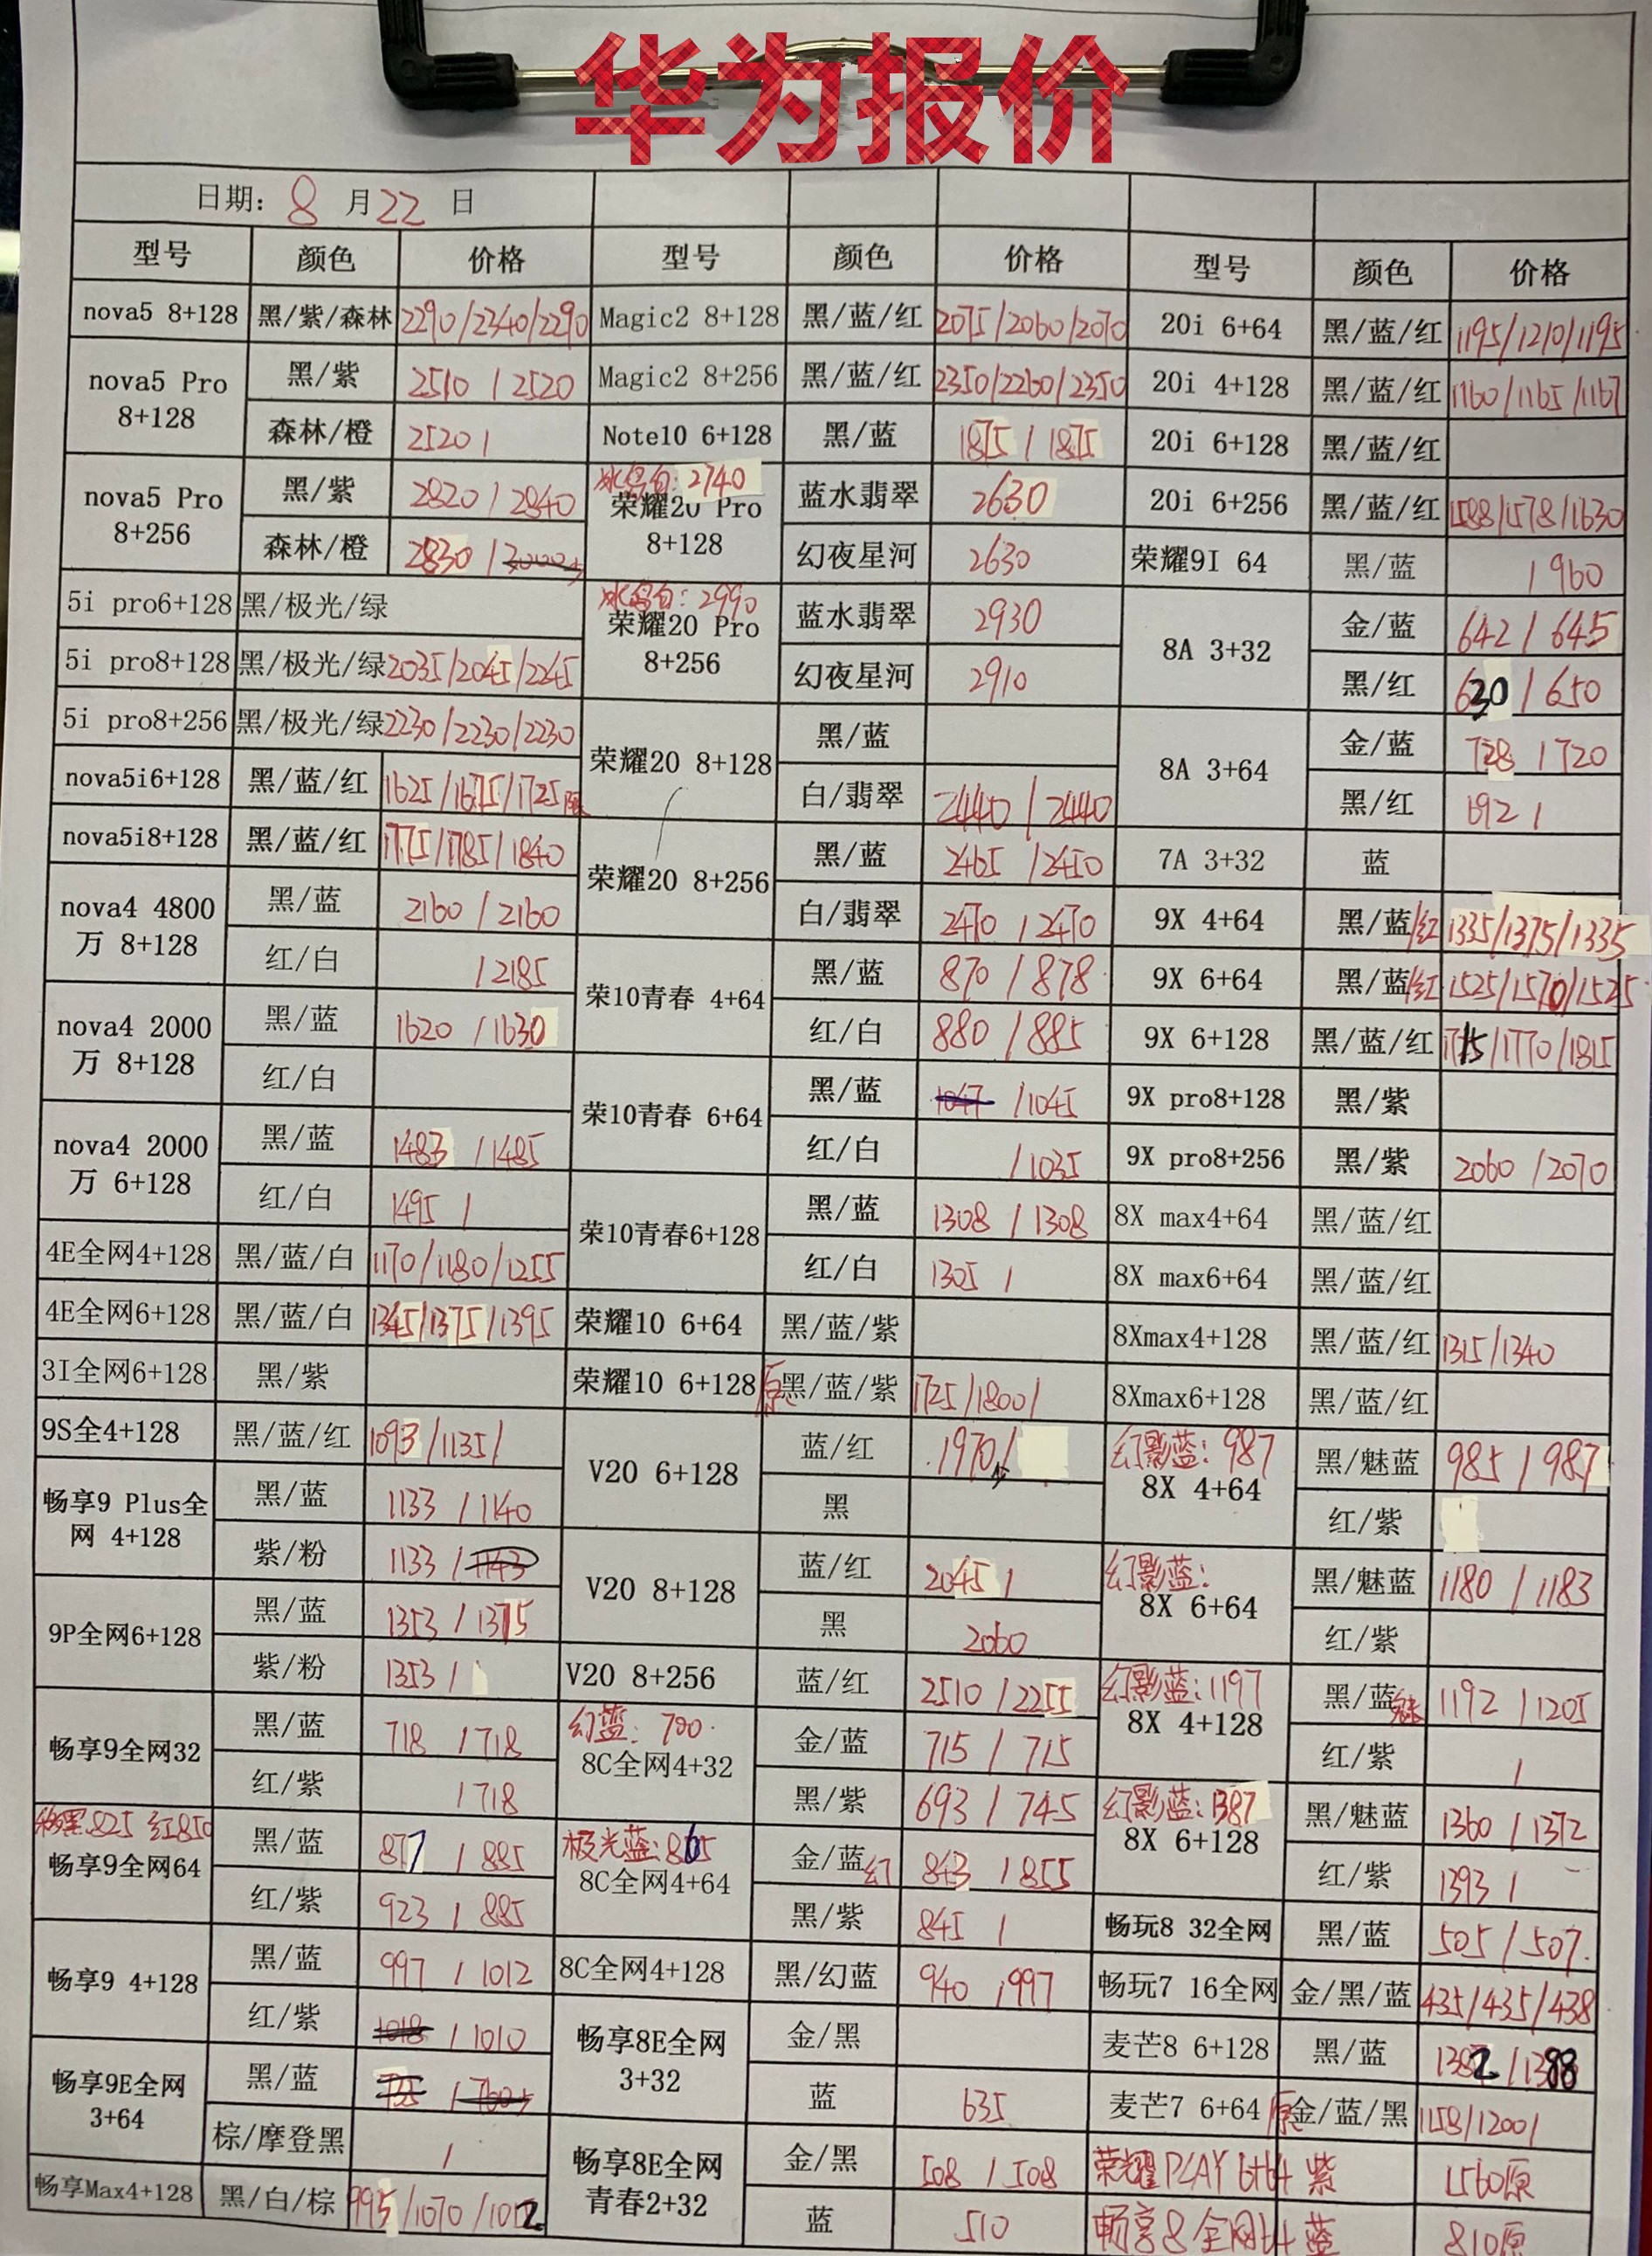 华为报价
日期: 8 月 22 日
型号 颜色 价格 型号 颜色 价格 型号 颜色 价格
nova5 8+128 黑/紫/森林 2290/2340/2290 Magic2 8+128 黑/蓝/红 2075/2060/2070 20i 6+64 黑/蓝/红 1195/1210/1195
nova5 Pro 8+128 黑/紫 2510/2520 Magic2 8+256 黑/蓝/红 2350/2260/2350 20i 4+128 黑/蓝/红 1160/1165/1167
森林/橙 2520/ Note10 6+128 黑/蓝 1875/1875 20i 6+128 黑/蓝/红
nova5 Pro 8+256 黑/紫 2820/2840 冰岛白:2740 荣耀20 Pro 8+128 蓝水翡翠 2630 20i 6+256 黑/蓝/红 1588/1578/1630
森林/橙 2830/ 幻夜星河 2630 荣耀9I 64 黑/蓝 /960
5i pro6+128 黑/极光/绿 冰岛白:2990 荣耀20 Pro 8+256 蓝水翡翠 2930 8A 3+32 金/蓝 642/645
5i pro8+128 黑/极光/绿 2035/2045/2245 幻夜星河 2910 黑/红 630/650
5i pro8+256 黑/极光/绿 2230/2230/2230 荣耀20 8+128 黑/蓝 8A 3+64 金/蓝 728/720
nova5i6+128 黑/蓝/红 1625/1675/1725 白/翡翠 2440/2440 黑/红 692/
nova5i8+128 黑/蓝/红 1775/1785/1840 荣耀20 8+256 黑/蓝 2465/2450 7A 3+32 蓝
nova4 4800万 8+128 黑/蓝 2160/2160 白/翡翠 2470/2470 9X 4+64 黑/蓝/红 1335/1375/1335
红/白 /2185 荣10青春 4+64 黑/蓝 870/878 9X 6+64 黑/蓝/红 1525/1570/1525
nova4 2000万 8+128 黑/蓝 1620/1630 红/白 880/885 9X 6+128 黑/蓝/红 1775/1770/1815
红/白 荣10青春 6+64 黑/蓝 1047/1045 9X pro8+128 黑/紫
nova4 2000万 6+128 黑/蓝 1483/1485 红/白 /1035 9X pro8+256 黑/紫 2060/2070
红/白 1495/ 荣10青春6+128 黑/蓝 1308/1308 8X max4+64 黑/蓝/红
4E全网4+128 黑/蓝/白 1170/1180/1255 红/白 1305/ 8X max6+64 黑/蓝/红
4E全网6+128 黑/蓝/白 1345/1375/1395 荣耀10 6+64 黑/蓝/紫 8Xmax4+128 黑/蓝/红 1315/1340
3I全网6+128 黑/紫 荣耀10 6+128 原黑/蓝/紫 1725/1800/ 8Xmax6+128 黑/蓝/红
9S全4+128 黑/蓝/红 1093/1135/ V20 6+128 蓝/红 1970/ 幻影蓝:987 8X 4+64 黑/魅蓝 985/987
畅享9 Plus全网 4+128 黑/蓝 1133/1140 黑 红/紫
紫/粉 1133/1143 V20 8+128 蓝/红 2045/ 幻影蓝: 8X 6+64 黑/魅蓝 1180/1183
9P全网6+128 黑/蓝 1353/1375 黑 2060 红/紫
紫/粉 1353/ V20 8+256 蓝/红 2510/2255 幻影蓝:1197 8X 4+128 黑/蓝魅 1192/1205
畅享9全网32 黑/蓝 718/718 幻蓝:700 8C全网4+32 金/蓝 715/715 红/紫 /
红/紫 /718 黑/紫 693/745 幻影蓝:1387 8X 6+128 黑/魅蓝 1360/1372
移黑825 红850 畅享9全网64 黑/蓝 877/885 极光蓝:865 8C全网4+64 金/蓝红 843/855 红/紫 1393/
红/紫 923/885 黑/紫 845/ 畅玩8 32全网 黑/蓝 505/507
畅享9 4+128 黑/蓝 997/1012 8C全网4+128 黑/幻蓝 940/997 畅玩7 16全网 金/黑/蓝 435/435/438
红/紫 1018/1010 畅享8E全网 3+32 金/黑 麦芒8 6+128 黑/蓝 1382/1388
畅享9E全网 3+64 黑/蓝 蓝 635 麦芒7 6+64 原金/蓝/黑 1158/1200/
棕/摩登黑 / 畅享8E全网青春2+32 金/黑 508/508 荣耀PLAY 6+64 紫 1560原
畅享Max4+128 黑/白/棕 995/1070/1012 蓝 510 畅享8全网64 蓝 810原